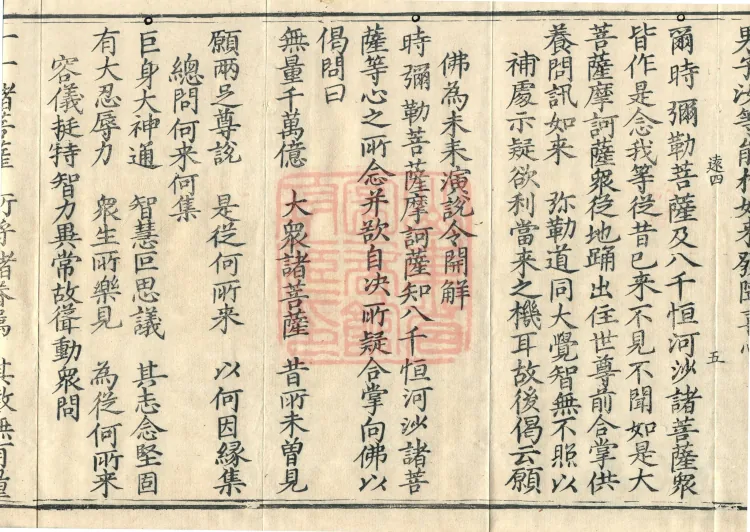 遠四
五
爾時彌勒菩薩及八千恒河沙諸菩薩衆
皆作是念我等從昔已来不見不聞如是大
菩薩摩訶薩衆從地踊出住世尊前合掌供
養問訊如来　弥勒道同大覺智無不照以
補處示疑欲利當来之機耳故後偈云願
佛為未来演說令開解
時彌勒菩薩摩訶薩知八千恒河沙諸菩
薩等心之所念并欲自决所疑合掌向佛以
偈問曰
無量千萬億　大衆諸菩薩　昔所未曽見
願兩足尊說　是從何所来　以何因緣集
總問何来何集
巨身大神通　智慧叵思議　其志念堅固
有大忍辱力　衆生所樂見　為從何所来
容儀挺特智力異常故聳動衆問
一一諸菩薩　所將諸眷屬　其數無有量